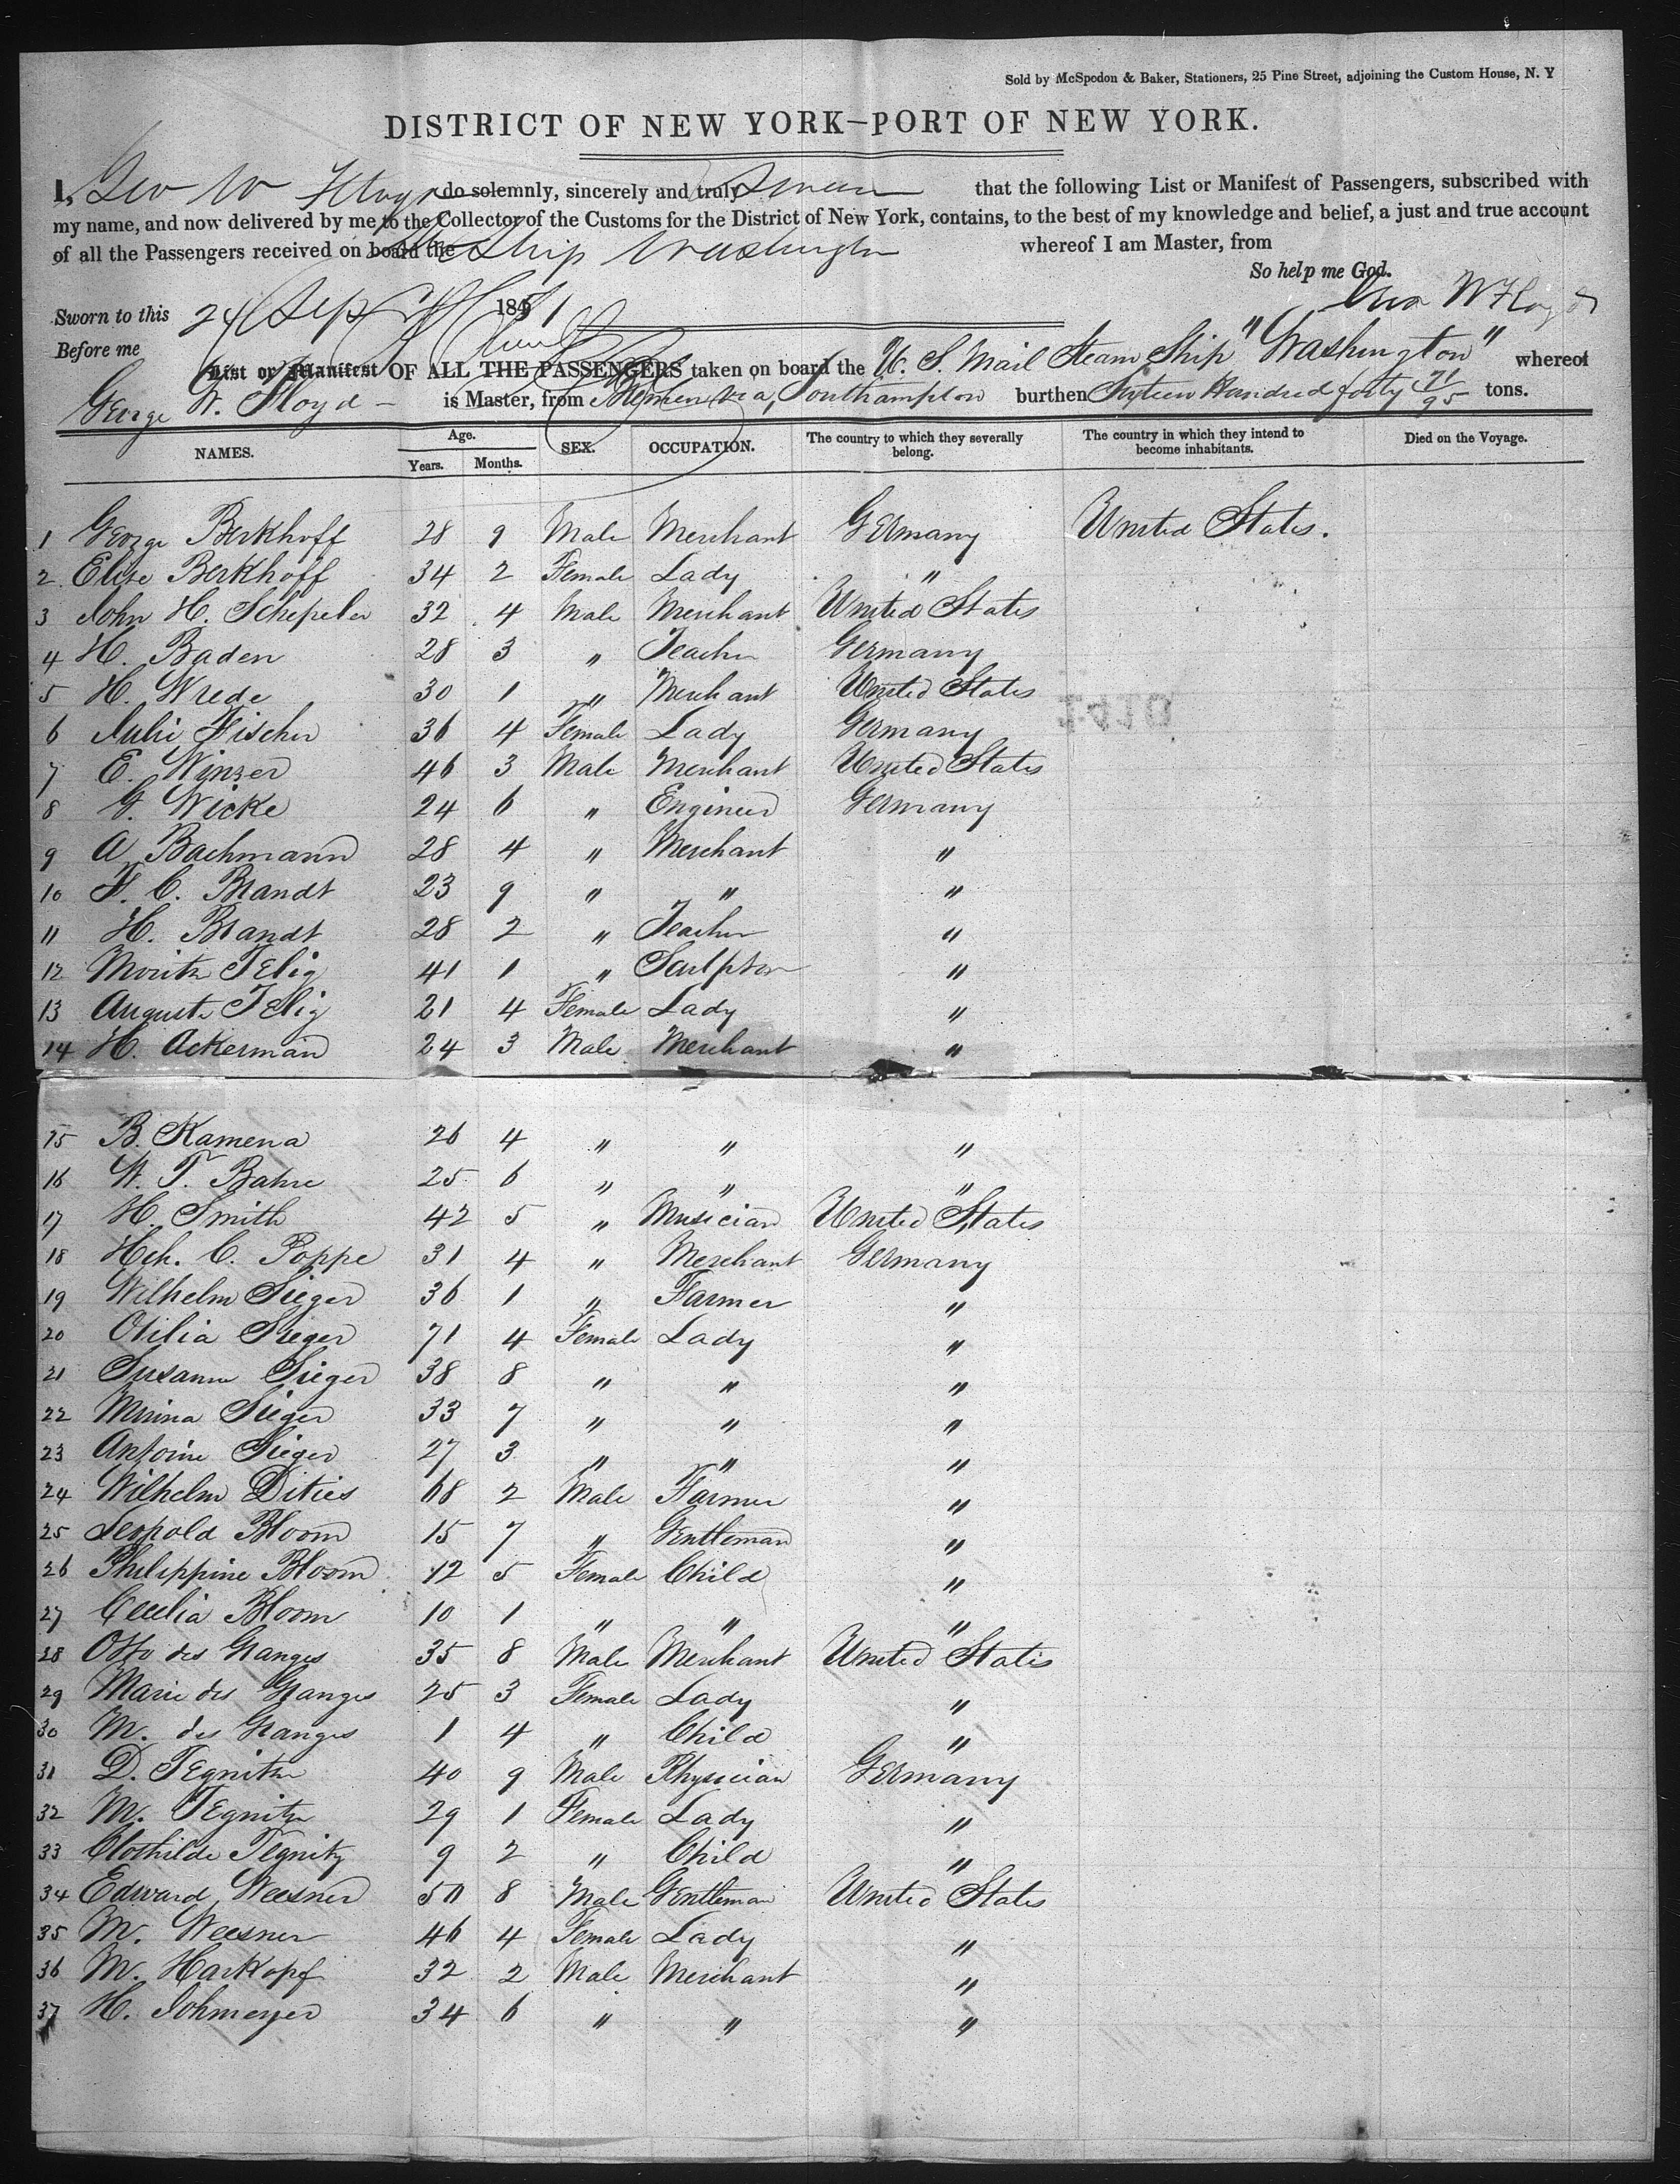 Sold by McSpedon & Baker, Stationers, 25 Pine Street, adjoining the Custom House, N. Y
DISTRICT OF NEW YORK—PORT OF NEW YORK.
I, Geo W Floyd do solemnly, sincerely and truly swear that the following List or Manifest of Passengers, subscribed with
my name, and now delivered by me to the Collector of the Customs for the District of New York, contains, to the best of my knowledge and belief, a just and true account
of all the Passengers received on board the Ship Washington whereof I am Master, from
So help me God.
Sworn to this 24 Sep 1851 Geo W Floyd
Before me
List or Manifest OF ALL THE PASSENGERS taken on board the U. S. Mail Steam Ship "Washington" whereof
George W. Floyd - is Master, from Bremen via, Southampton burthen Sixteen Hundred forty 71/95 tons.
NAMES. Age. Years. Months. SEX. OCCUPATION. The country to which they severally belong. The country in which they intend to become inhabitants. Died on the Voyage.
1 George Berkhoff 28 9 Male Merchant Germany United States.
2 Elise Berkhoff 34 2 Female Lady "
3 John H. Schepeler 32 4 Male Merchant United States
4 H. Baden 28 3 " Teacher Germany
5 H. Wrede 30 1 " Merchant United States
6 Julie Fischer 36 4 Female Lady Germany
7 E. Winzer 46 3 Male Merchant United States
8 G. Wicke 24 6 " Engineer Germany
9 A Bachmann 28 4 " Merchant "
10 F. C. Brandt 23 9 " " "
11 H. Brandt 28 2 " Teacher "
12 Moritz Telig 41 1 " Sculptor "
13 Auguste Telig 21 4 Female Lady "
14 H. Ackerman 24 3 Male Merchant "
15 B. Kamena 26 4 " " "
16 W. T. Bahre 25 6 " " "
17 H. Smith 42 5 " Musician United States
18 Hch. C. Poppe 31 4 " Merchant Germany
19 Wilhelm Sieger 36 1 " Farmer "
20 Otilia Sieger 71 4 Female Lady "
21 Susanne Sieger 38 8 " " "
22 Minna Sieger 33 7 " " "
23 Antoine Sieger 27 3 " " "
24 Wilhelm Dities 68 2 Male Farmer "
25 Leopold Bloom 15 7 " Gentleman "
26 Philippine Bloom 12 5 Female Child "
27 Cecelia Bloom 10 1 " " "
28 Otto des Granges 35 8 Male Merchant United States
29 Marie des Granges 25 3 Female Lady "
30 M. des Granges 1 4 " Child "
31 D. Tegnitz 40 9 Male Physician Germany
32 M. Tegnitz 29 1 Female Lady "
33 Clothilde Tegnitz 9 2 " Child "
34 Edward Weesner 50 8 Male Gentleman United States
35 M. Weesner 46 4 Female Lady "
36 M. Harkopf 32 2 Male Merchant "
37 H. Johmeyer 34 6 " " "